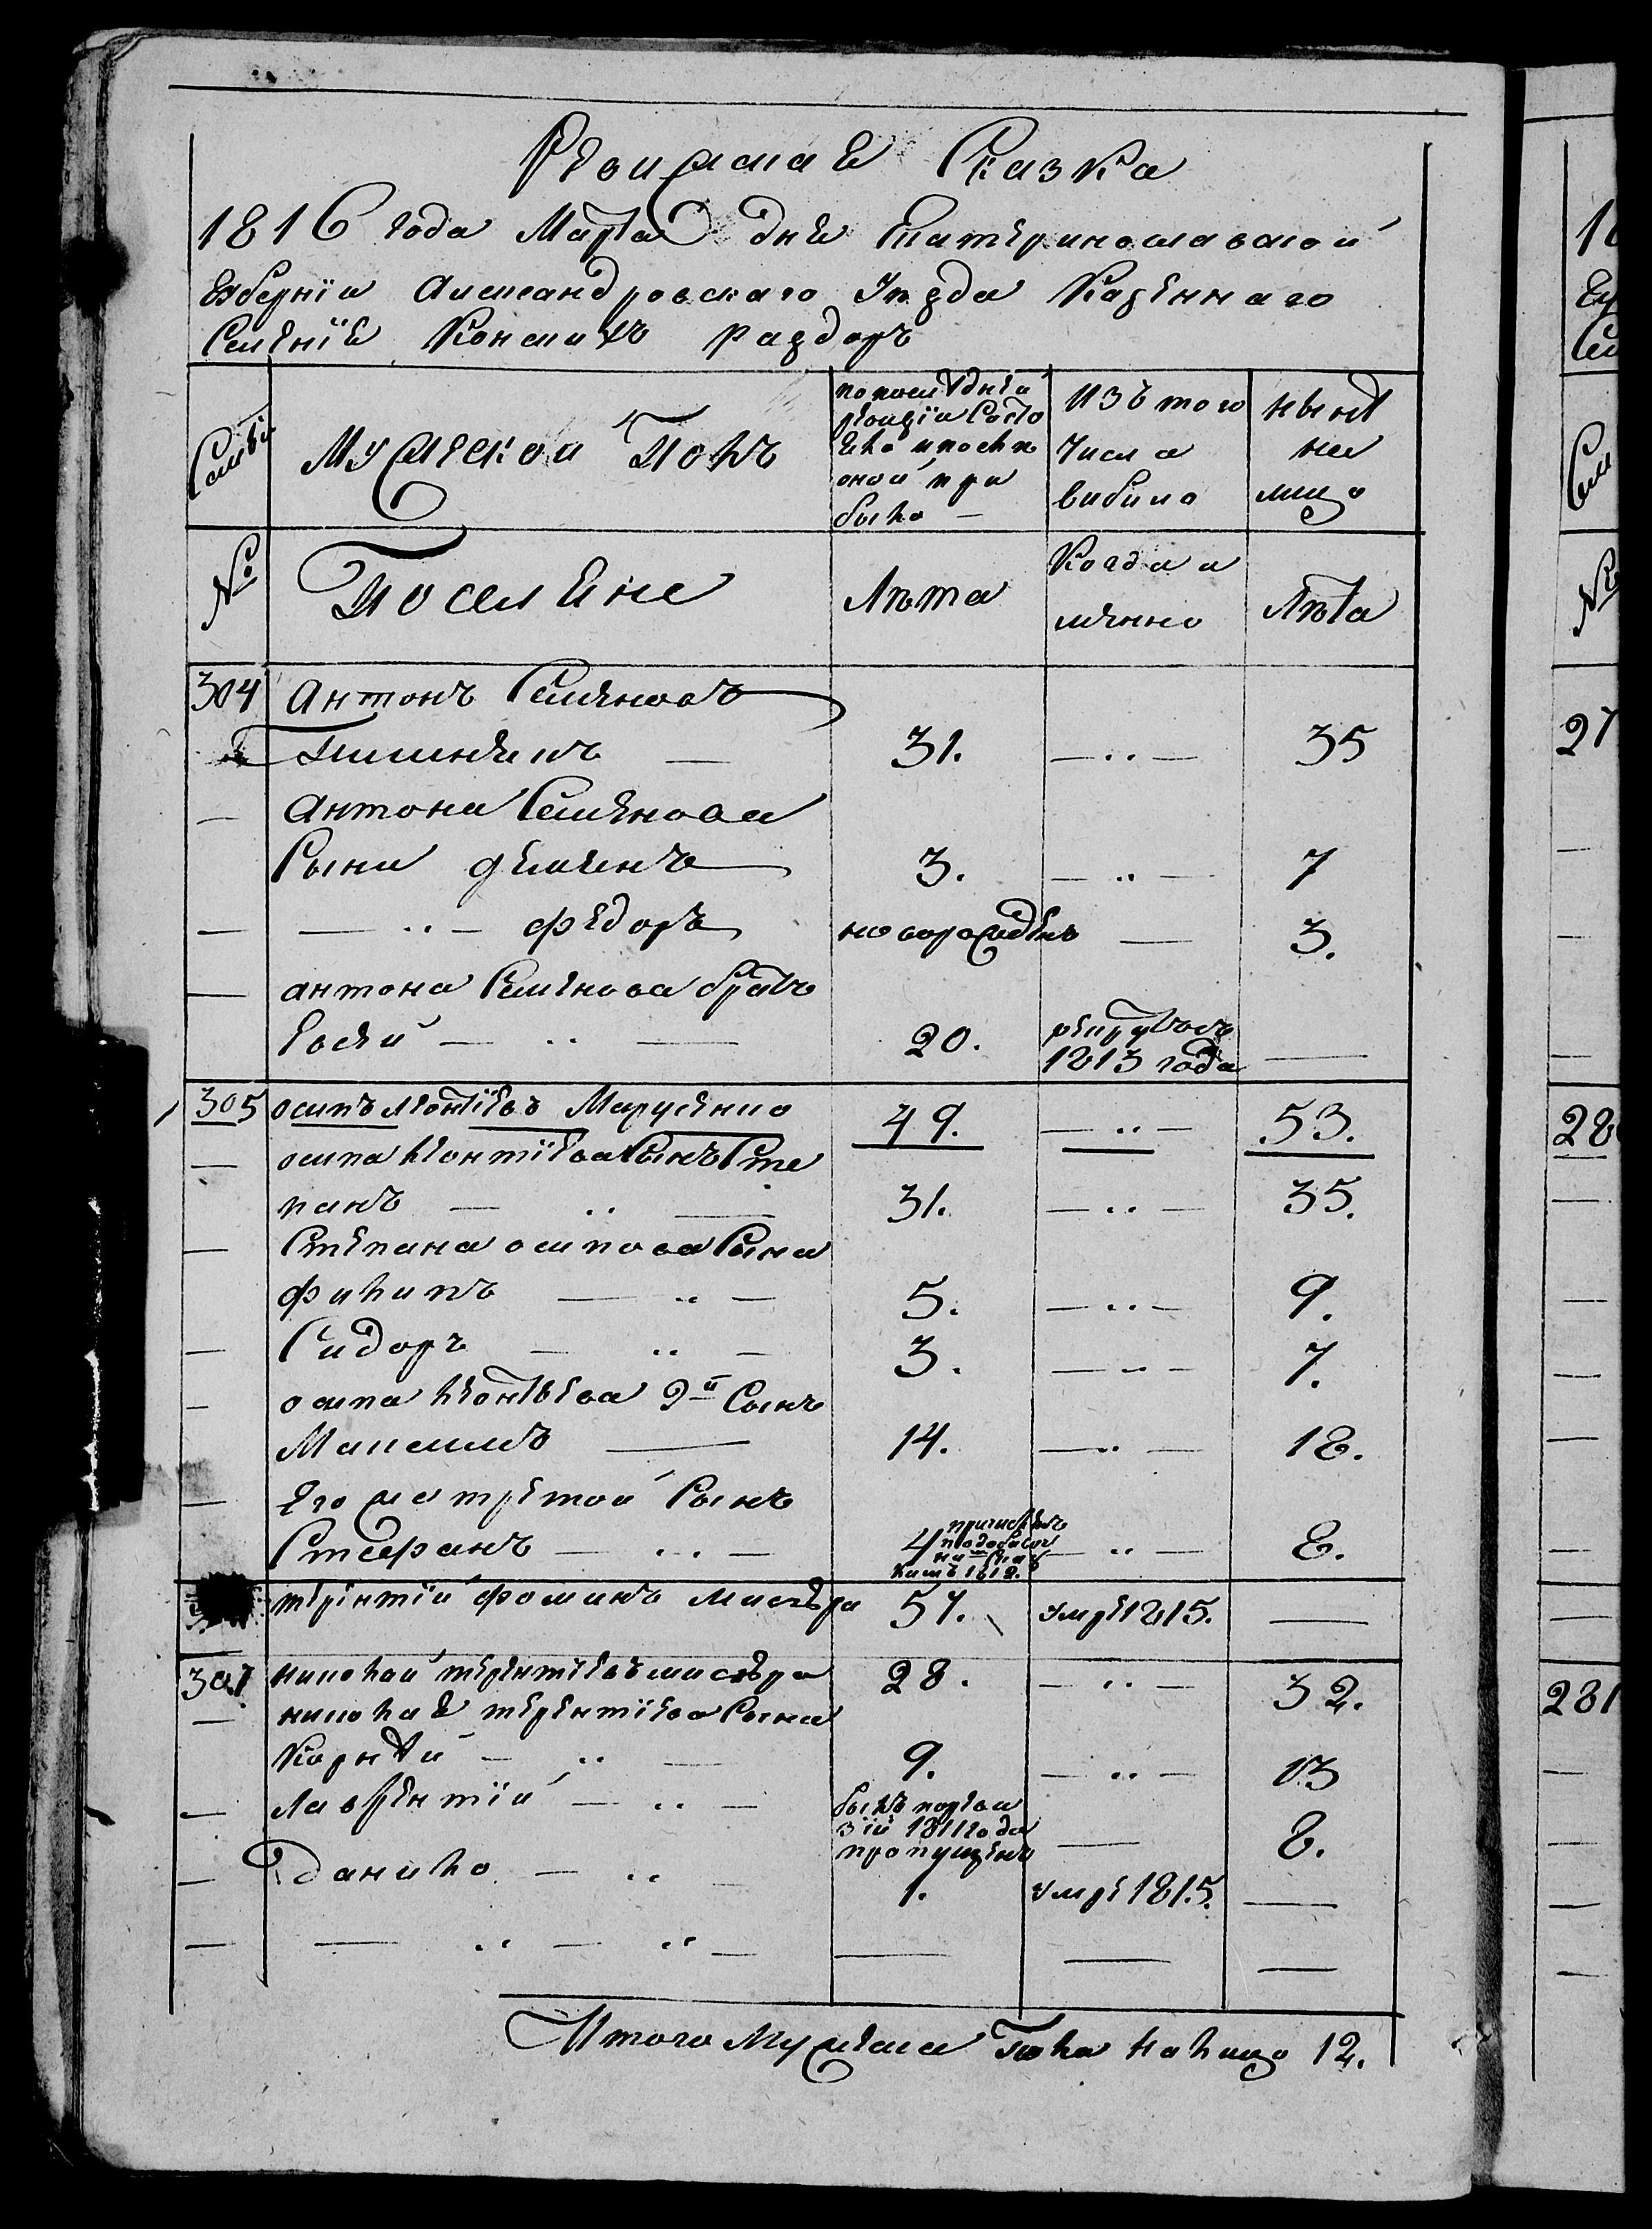 Ревижская Сказка
1816 года Марта дня Екатеринославской
Губернїи Александровскаго Уѣзда Казеннаго
Селенїе Конскихъ раздоръ
Семьи
Мужеской Полъ
по последнѣй
ревизїи Состо
яло и послѣ
оной при
было
Изъ того
Числа
выбыло
нынѣ
на
лицо
№
Поселяне
Лѣта
Когда и
имянно
Лѣта
304 Антонъ Семеновъ
31. 35
Антона Семенова
Сыни 3. 7
федоръ новорожденъ 3.
антона Семенова братъ
Евсей 20. рекрутъ
1813 года
305 осипъ леонтїевъ Марусенко 49. 53.
осипа леонтїева Сынъ Сте
панъ 31. 35.
Степана осипова Сына
филипъ 5. 9.
Сидоръ 3. 7.
осипа леонтьева 2й Сынъ
Максимъ 14. 18.
Его же третой Сынъ
Стефанъ 4 8.
терентїй фоминъ 57. умре 1815.
307 николай терентьевъ 28. 32.
николая терентїева Сына
Корнѣй 9. 13
Лаврентїй былъ по реви
зїи 1811 года
пропущенъ 8.
данило 1. умре 1815.
Итого Мужеска Пола На лицо 12.
10
27
28
281